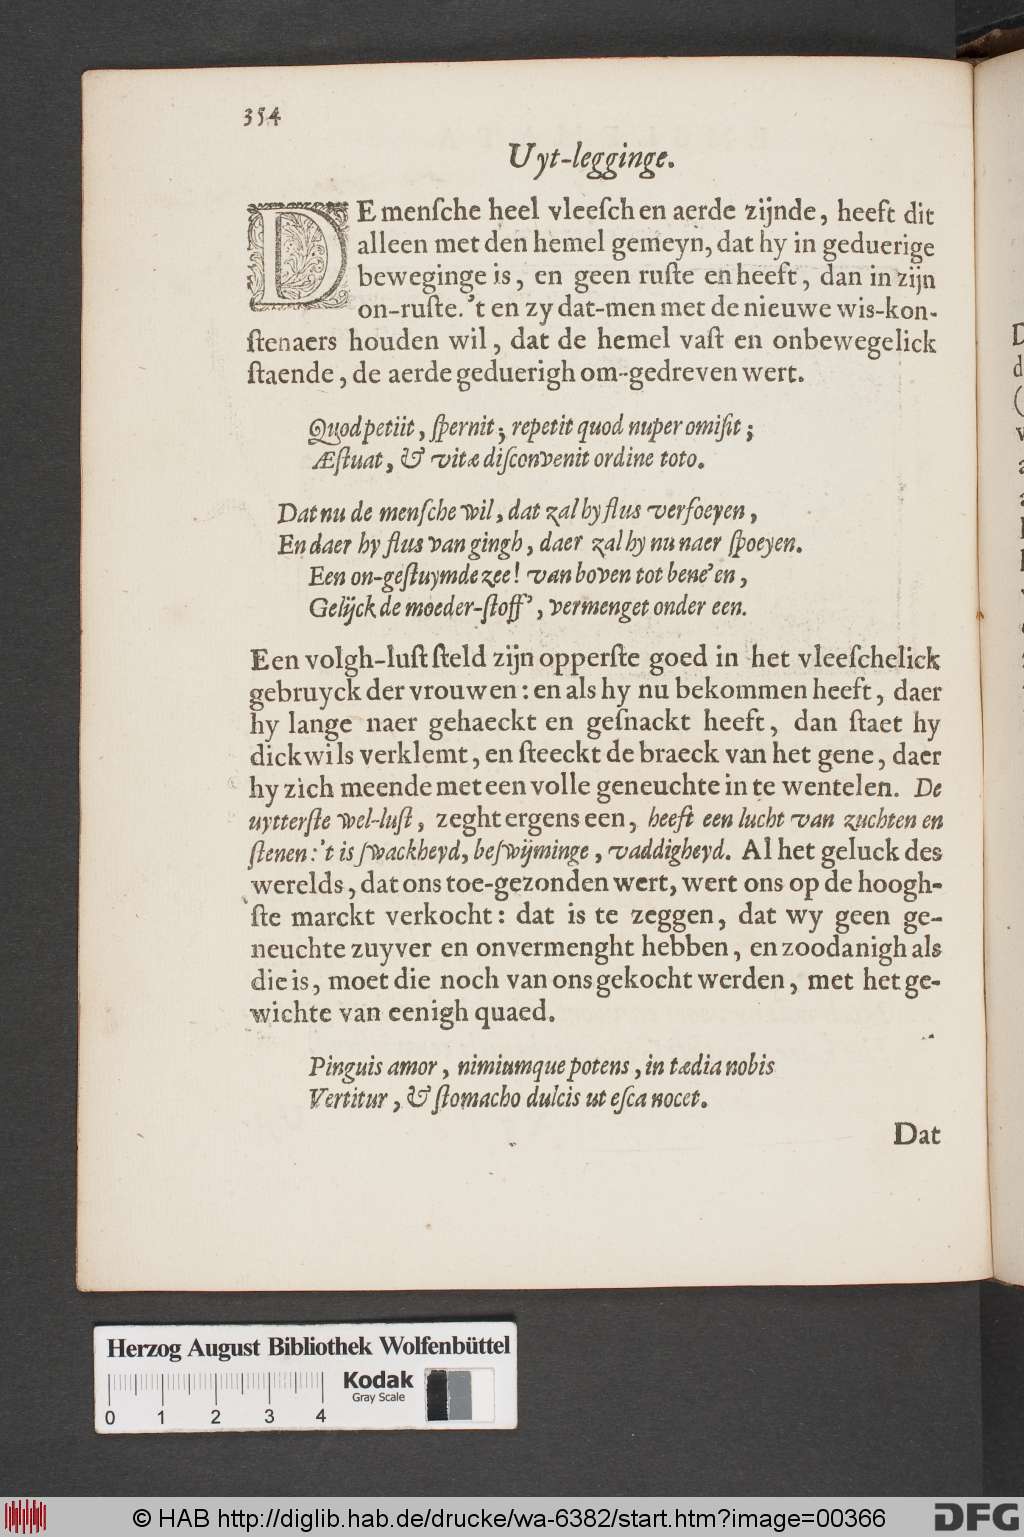 354
Uyt-legginge.
DE menſche heel vleeſch en aerde zijnde, heeft dit
alleen met den hemel gemeyn, dat hy in geduerige
beweginge is, en geen ruſte en heeft, dan in zijn
on-ruſte. 't en zy dat-men met de nieuwe wis-kon-
ſtenaers houden wil, dat de hemel vaſt en onbewegelick
ſtaende, de aerde geduerigh om-gedreven wert.
Quod petiit, ſpernit; repetit quod nuper omiſit;
Æſtuat, & vitæ diſconvenit ordine toto.
Dat nu de menſche wil, dat zal hy flus verfoeyen,
En daer hy flus van gingh, daer zal hy nu naer ſpoeyen.
Een on-geſtuymde zee! van boven tot bene'en,
Gelijck de moeder-ſtoff', vermenget onder een.
Een volgh-luſt ſteld zijn opperſte goed in het vleeſchelick
gebruyck der vrouwen: en als hy nu bekommen heeft, daer
hy lange naer gehaeckt en geſnackt heeft, dan ſtaet hy
dickwils verklemt, en ſteeckt de braeck van het gene, daer
hy zich meende met een volle geneuchte in te wentelen. De
uytterſte wel-luſt, zeght ergens een, heeft een lucht van zuchten en
ſtenen: 't is ſwackheyd, beſwijminge, vaddigheyd. Al het geluck des
werelds, dat ons toe-gezonden wert, wert ons op de hoogh-
ſte marckt verkocht: dat is te zeggen, dat wy geen ge-
neuchte zuyver en onvermenght hebben, en zoodanigh als
die is, moet die noch van ons gekocht werden, met het ge-
wichte van eenigh quaed.
Pinguis amor, nimiumque potens, in tædia nobis
Vertitur, & ſtomacho dulcis ut eſca nocet.
Dat
Herzog August Bibliothek Wolfenbüttel
Kodak
Gray Scale
0 1 2 3 4
© HAB http://diglib.hab.de/drucke/wa-6382/start.htm?image=00366
DFG